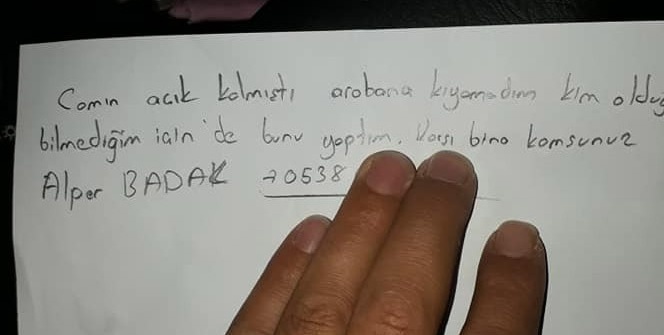 Camın acık kalmıstı arabana kıyamadım kim olduğ
bilmediğim icin de bunu yaptım. Karsı bina komsunuz
Alper BADAK →0538